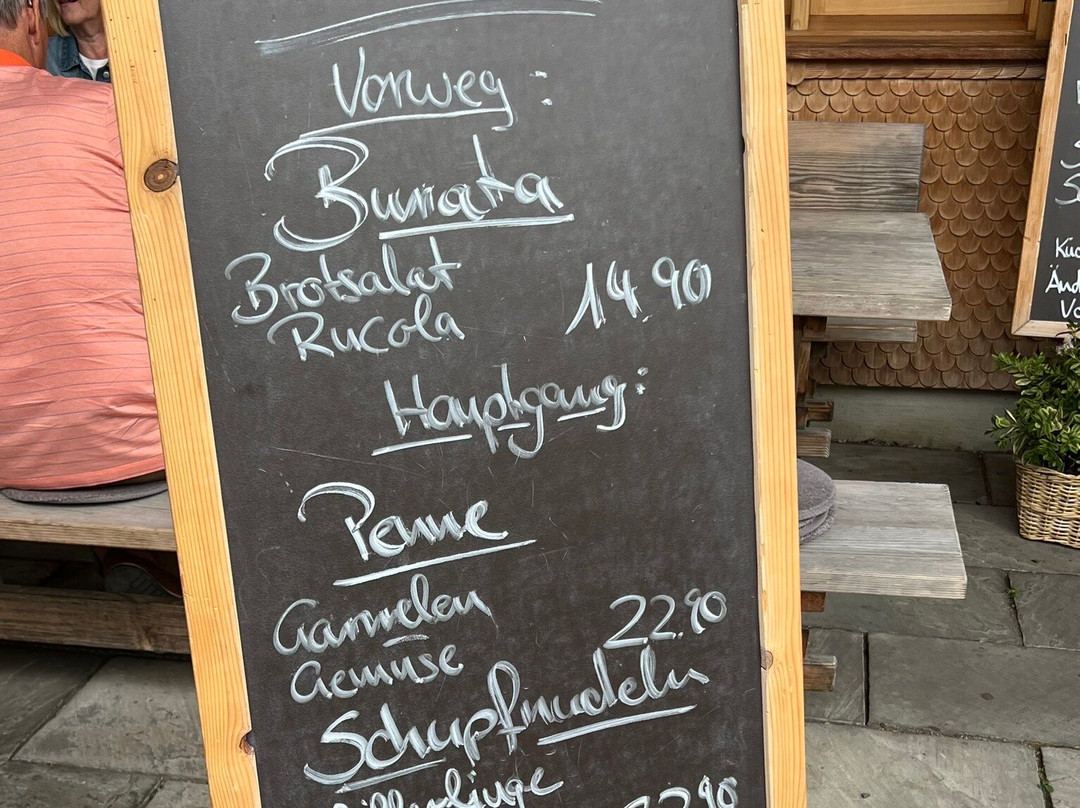 Vorweg:
Burrata
Brotsalat
Rucola
14.90
Hauptgang:
Penne
Garnelen
Gemüse
22.90
Schupfnudeln
Pfifferlinge
Küc
Änd
Vo